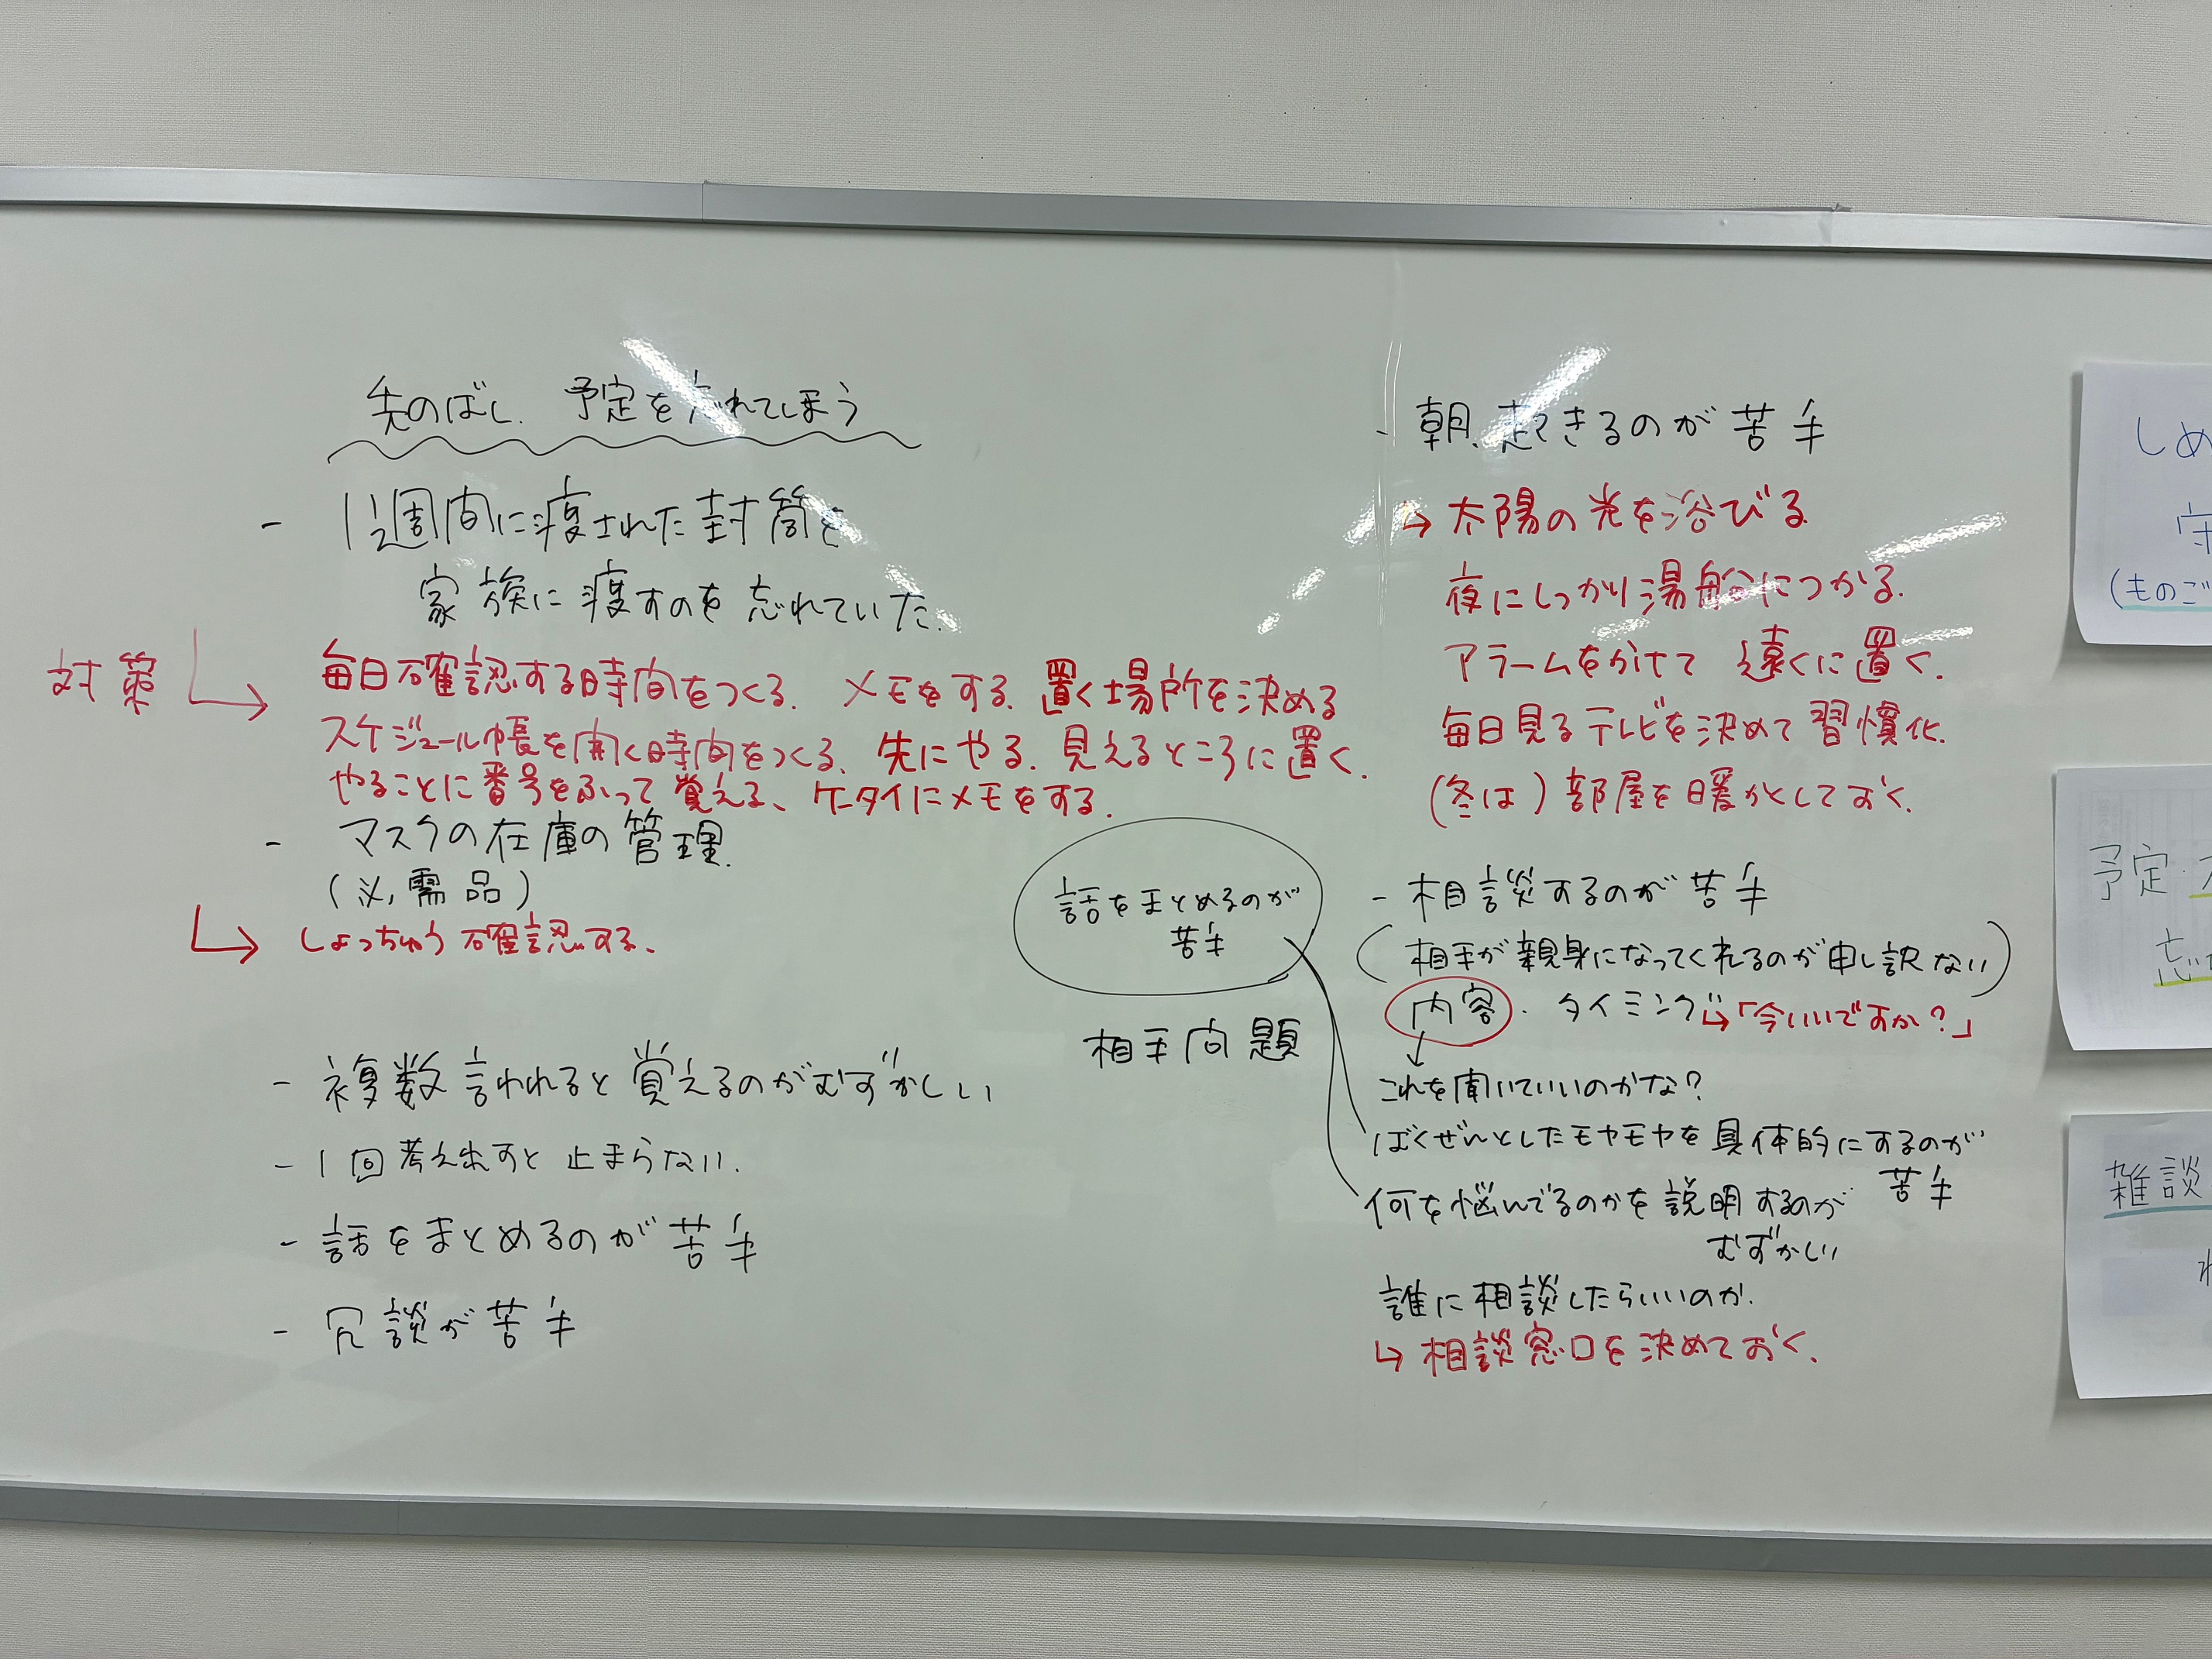 先のばし、予定を忘れてしまう
- 1週間に渡された封筒を
家族に渡すのを忘れていた。
対策
毎日確認する時間をつくる、メモをする、置く場所を決める
スケジュール帳を開く時間をつくる、先にやる、見えるところに置く、
やることに番号をふって覚える、ケータイにメモをする、
- マスクの在庫の管理、
(必需品)
しょっちゅう確認する、
- 複数言われると覚えるのがむずかしい
- 1回考え出すと止まらない、
- 話をまとめるのが苦手
- 冗談が苦手
話をまとめるのが
苦手
相手問題
- 朝、起きるのが苦手
↳ 太陽の光を浴びる
夜にしっかり湯船につかる、
アラームをかけて遠くに置く、
毎日見るテレビを決めて習慣化、
(冬は)部屋を暖かくしておく、
- 相談するのが苦手
(相手が親身になってくれるのが申し訳ない)
内容、タイミング↳「今いいですか?」
↓
これを聞いていいのかな?
ばくぜんとしたモヤモヤを具体的にするのが
苦手
何を悩んでるのかを説明するのが
むずかしい
誰に相談したらいいのか、
↳ 相談窓口を決めておく、
しめ
守
(ものご
予定
忘
雑談